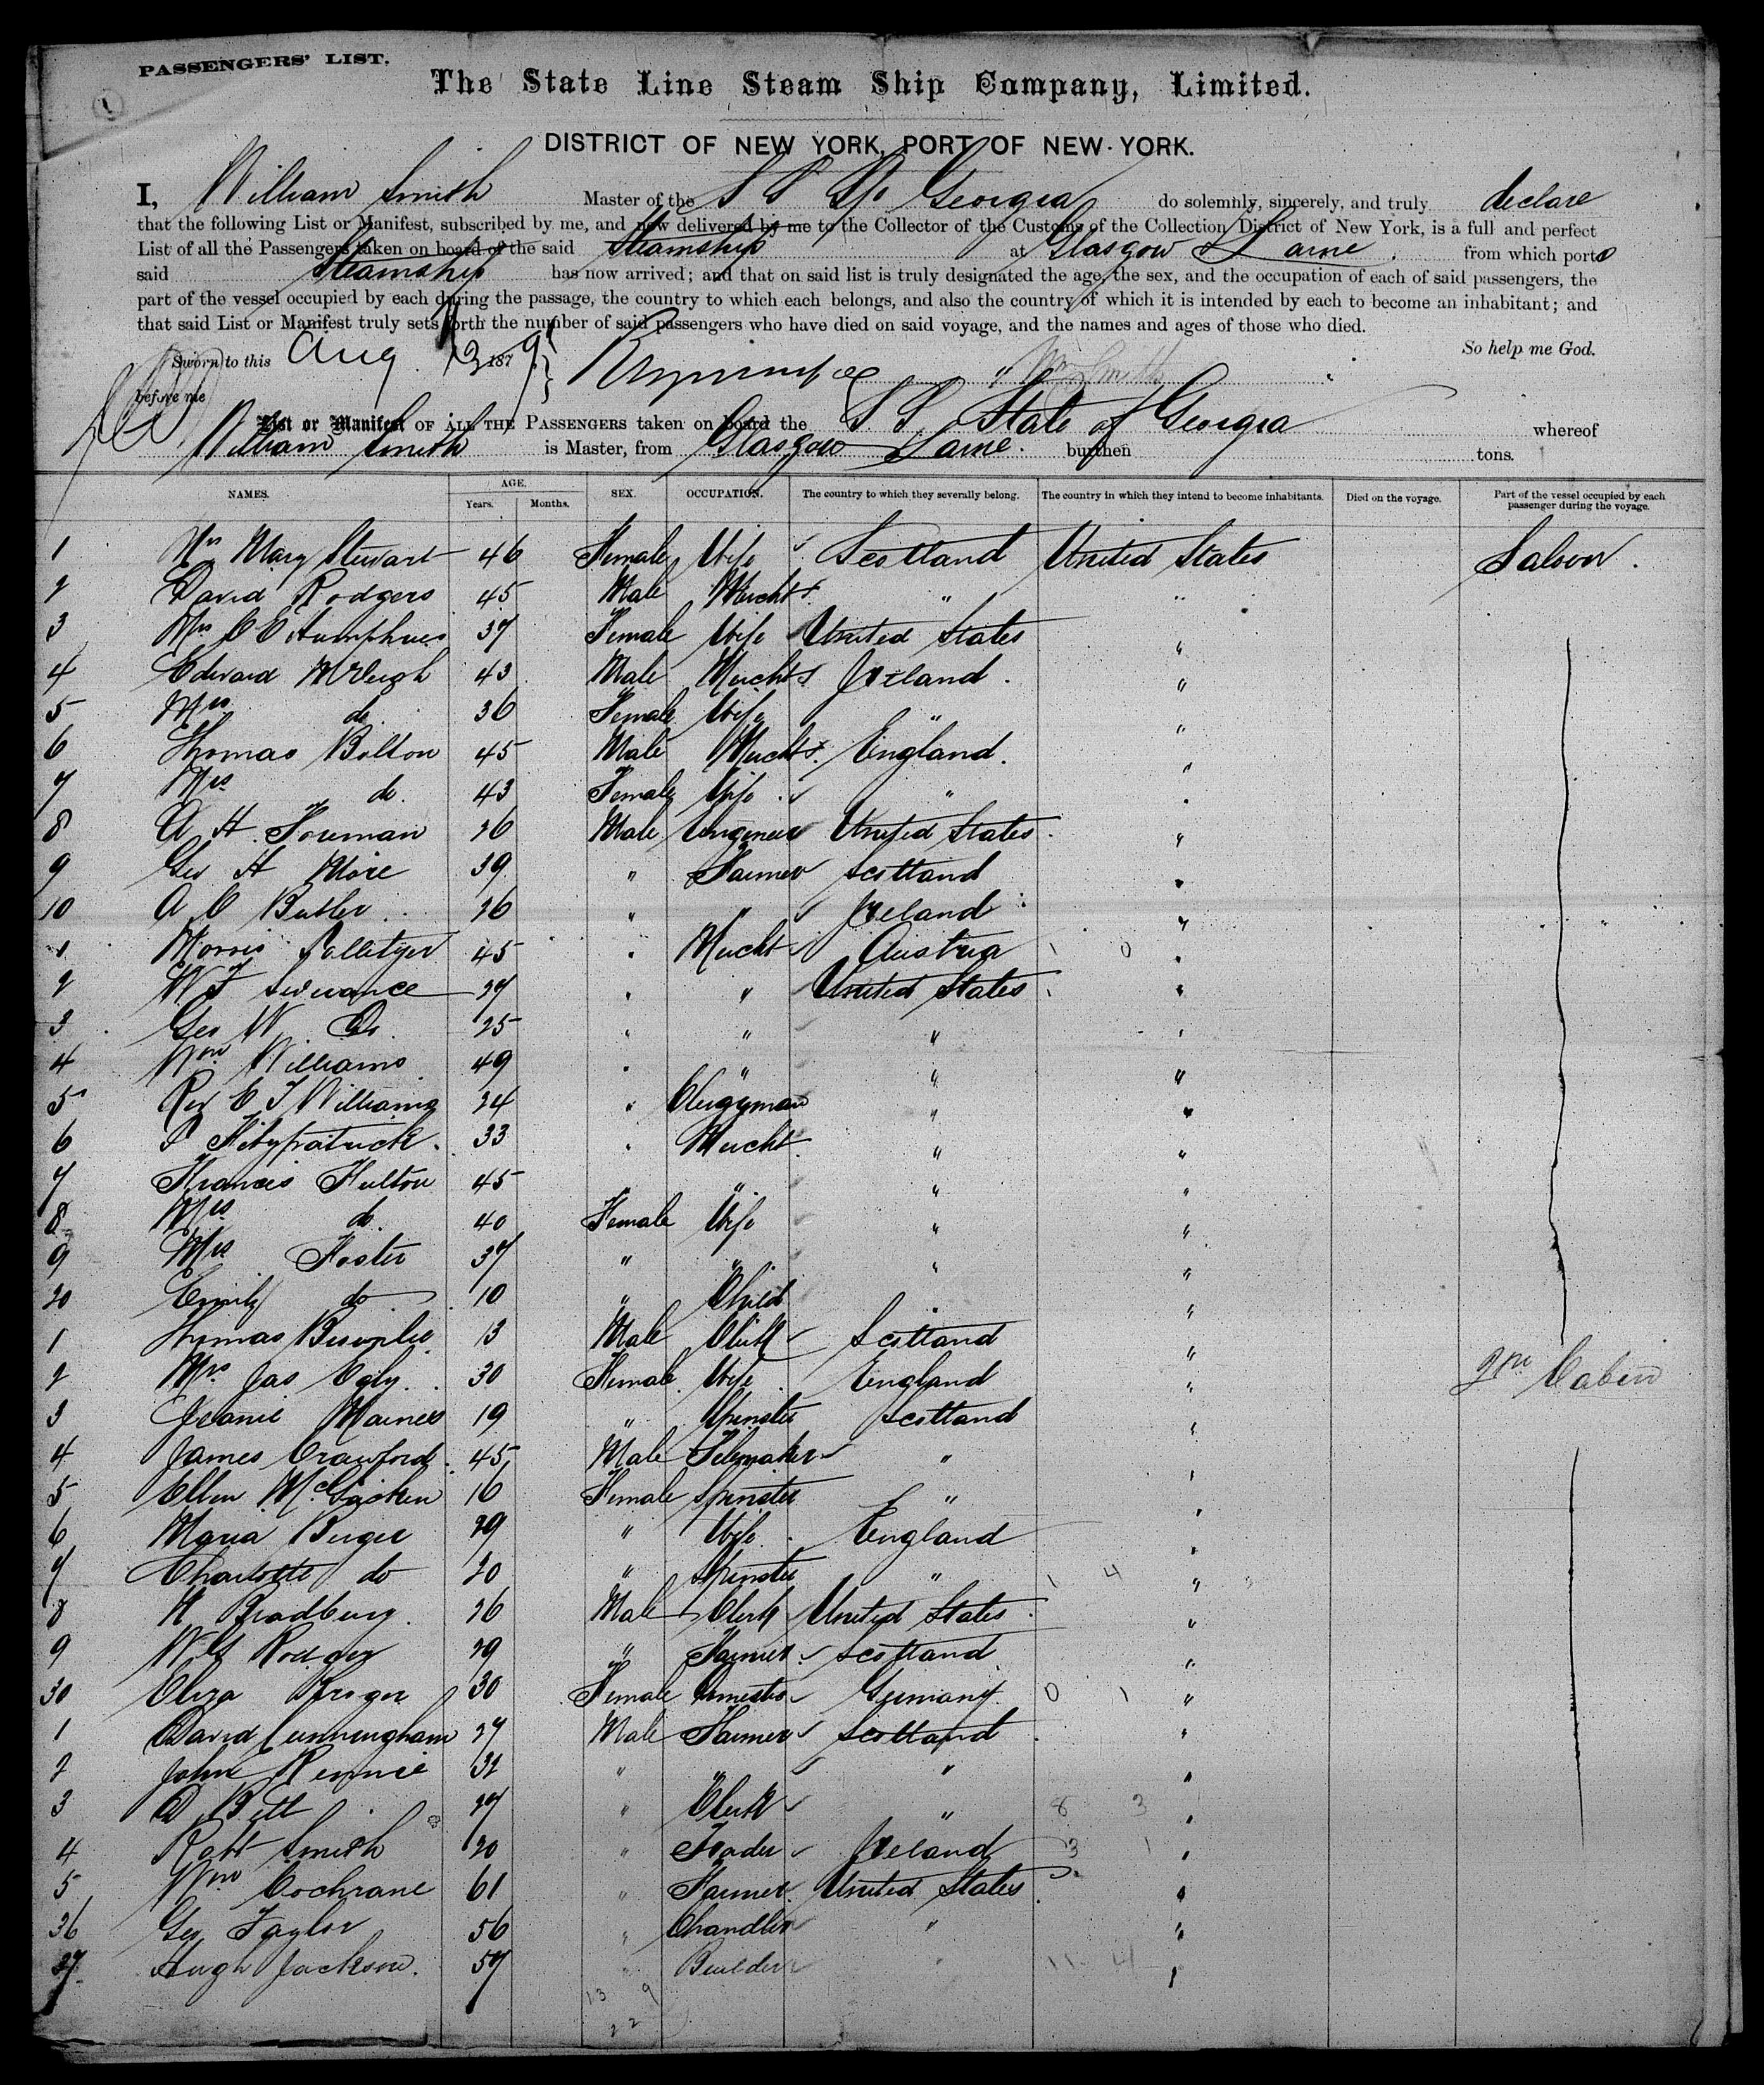 PASSENGERS' LIST.
1
The State Line Steam Ship Company, Limited.
DISTRICT OF NEW YORK, PORT OF NEW YORK.
I, William Smith Master of the S S St Georgia do solemnly, sincerely, and truly declare
that the following List or Manifest, subscribed by me, and now delivered by me to the Collector of the Customs of the Collection District of New York, is a full and perfect
List of all the Passengers taken on board of the said Steamship at Glasgow & Larne from which ports
said Steamship has now arrived; and that on said list is truly designated the age, the sex, and the occupation of each of said passengers, the
part of the vessel occupied by each during the passage, the country to which each belongs, and also the country of which it is intended by each to become an inhabitant; and
that said List or Manifest truly sets forth the number of said passengers who have died on said voyage, and the names and ages of those who died.
So help me God.
Sworn to this Aug 13 1879 Wm Smith
before me
List or Manifest OF ALL THE PASSENGERS taken on board the S S State of Georgia whereof
William Smith is Master, from Glasgow & Larne. burthen tons.
NAMES. AGE. Years. Months. SEX. OCCUPATION. The country to which they severally belong. The country in which they intend to become inhabitants. Died on the voyage. Part of the vessel occupied by each passenger during the voyage.
1 Mrs Mary Stewart 46 Female Wife Scotland United States Saloon.
2 David Rodgers 45 Male Mercht " "
3 Mrs C C Humphries 37 Female Wife United States "
4 Edward 43 Male Mercht Ireland. "
5 Mrs do. 36 Female Wife " "
6 Thomas Bolton 45 Male Mercht England. "
7 Mrs do. 43 Female Wife " "
8 A H Foreman 26 Male Engineer United States "
9 Geo H More 39 " Farmer Scotland "
10 A C Butler 26 " " Ireland "
1 Morris 45 " Mercht Austria 1 0 "
2 W F Severance 27 " " United States "
3 Geo W Do. 25 " " " "
4 Wm Williams 49 " " " "
5 Rev C J Williams 24 " Clergyman " "
6 P Fitzpatrick 33 " Mercht " "
7 Francis Fulton 45 " " " "
8 Mrs do. 40 Female Wife " "
9 Mrs Foster 37 " " " "
20 Emily do 10 " Child " "
1 Thomas 13 Male Clerk Scotland "
2 Mrs Jas 30 Female Wife England " 2nd Cabin
3 Jeanie Maines 19 " Spinster Scotland "
4 James Crawford 45 Male Filemaker " "
5 Ellen 16 Female Spinster " "
6 Maria Berger 29 " Wife England "
7 Charlotte do 20 " Spinster " 1 4 "
8 H Bradbury 26 Male Clerk United States "
9 Rodger 29 " Farmer Scotland "
30 Eliza Kroger 30 Female Domestic Germany 0 1 "
1 David Cunningham 27 Male Farmer Scotland "
2 John Rennie 32 " " " "
3 D Bell 27 " Clerk " 8 3 "
4 Robt Smith 20 " Trader Ireland 3 1 "
5 Wm Cochrane 61 " Farmer United States "
36 Geo Taylor 56 " Chandler " "
37 Hugh Jackson. 57 " Builder " 11 4 "
13 9
22